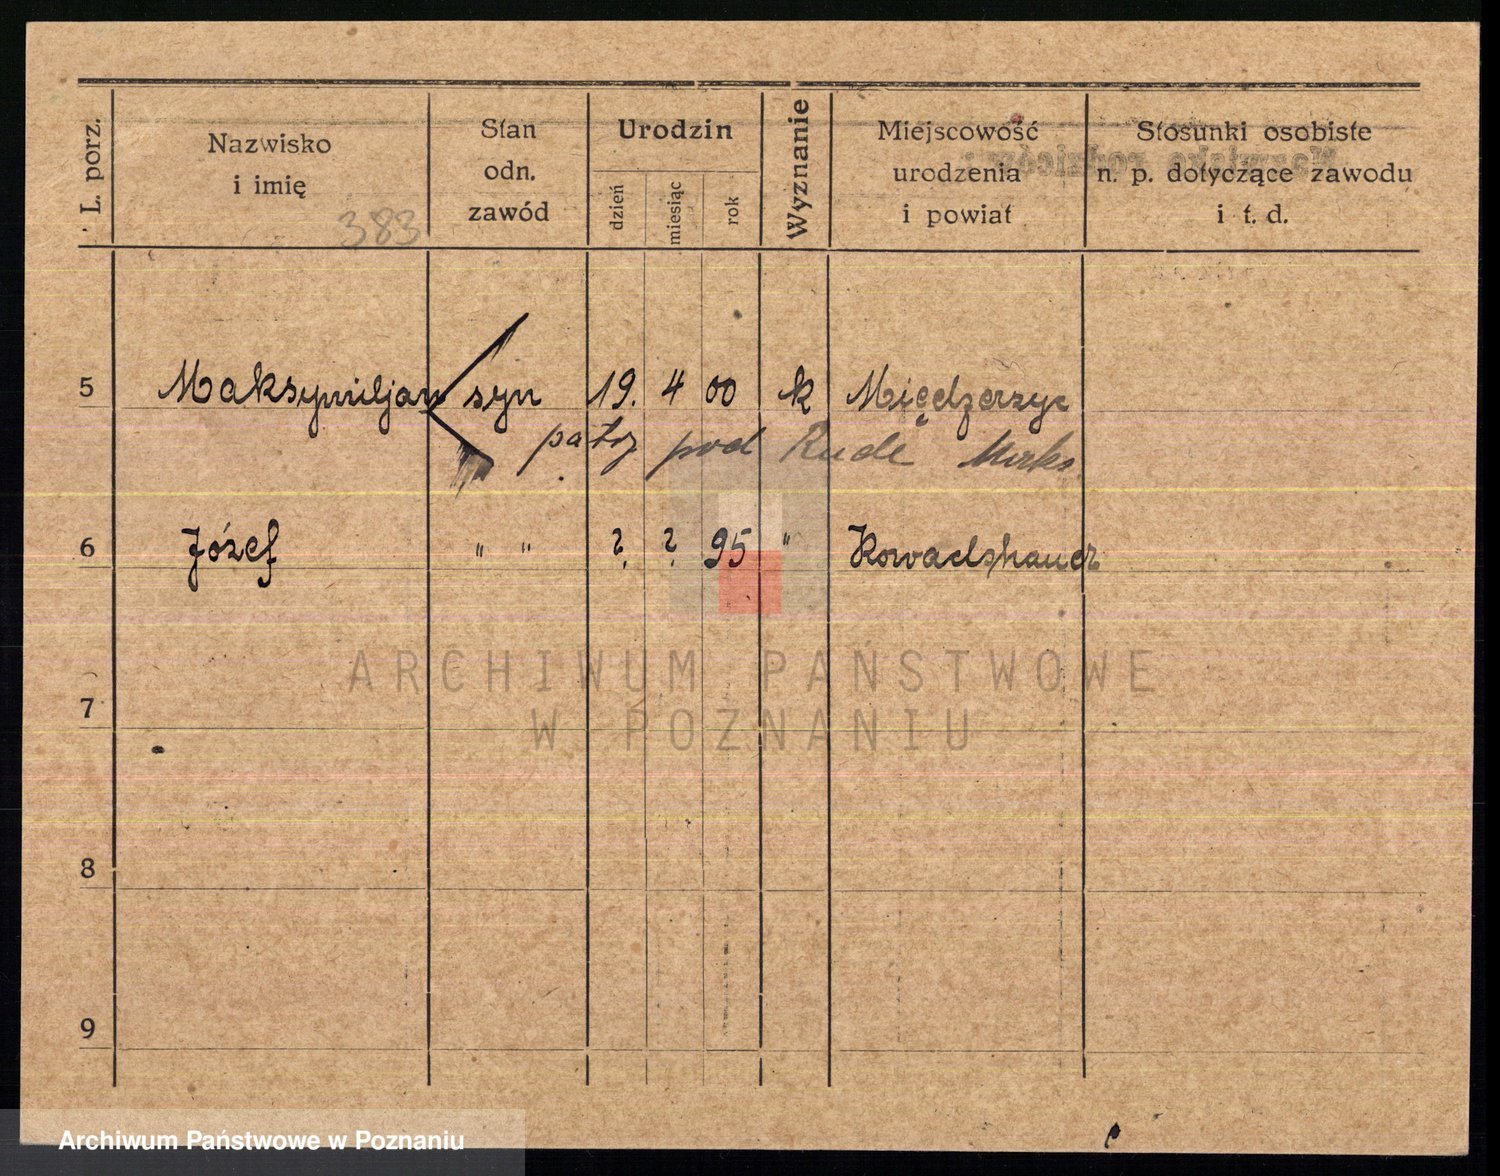 L. porz.
Nazwisko
i imię
383
Stan
odn.
zawód
Urodzin
dzień
miesiąc
rok
Wyznanie
Miejscowość
urodzenia
i powiat
Stosunki osobiste
n. p. dotyczące zawodu
i t. d.
5 Maksymiljan syn 19. 4 00 k Międzerzyc
patrz pod Rude Maks.
6 Józef " " ? ? 95 " Kowadshauer
7
8
9
ARCHIWUM PAŃSTWOWE
W POZNANIU
Archiwum Państwowe w Poznaniu